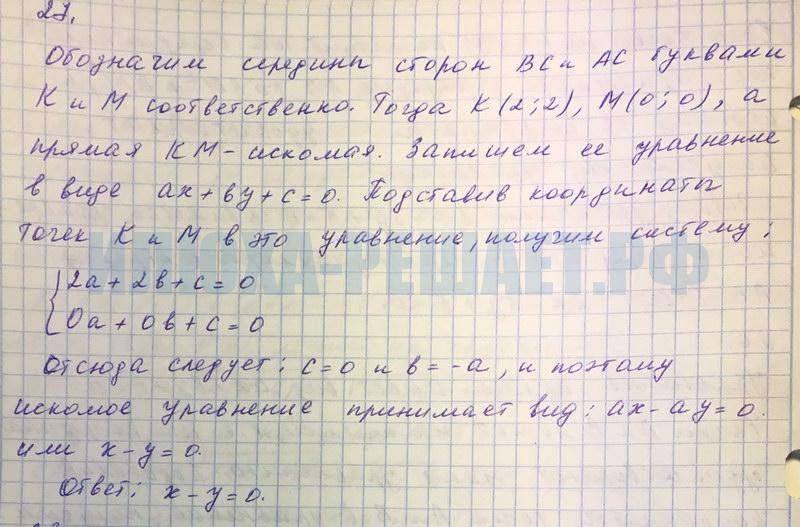 27.
Обозначим середины сторон BC и AC буквами
K и M соответственно. Тогда K(2;2), M(0;0), а
прямая KM - искомая. Запишем ее уравнение
в виде ax + by + c = 0. Подставив координаты
точек K и M в это уравнение, получим систему:
2a + 2b + c = 0
0a + 0b + c = 0
Отсюда следует: c = 0 и b = -a, и поэтому
искомое уравнение принимает вид: ax - ay = 0.
или x - y = 0.
Ответ: x - y = 0.
ИЛЮХА-РЕШАЕТ.РФ